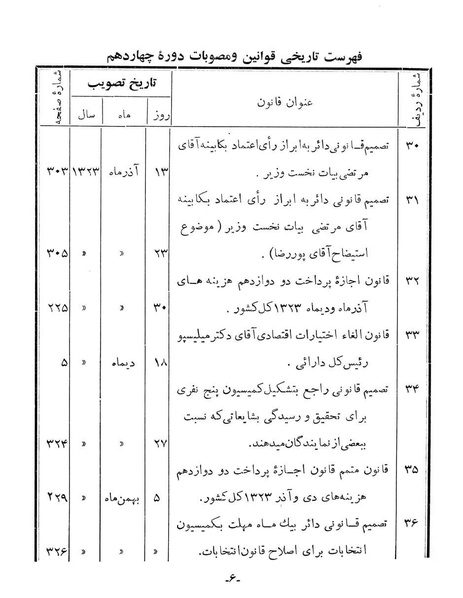 فهرست تاریخی قوانین ومصوبات دورهٔ چهاردهم
شمارهٔ ردیف
عنوان قانون
تاریخ تصویب
روز
ماه
سال
شمارهٔ صفحه
۳۰ تصمیم قـانونی دائر به ابراز رأی اعتماد بکابینه آقای
مرتضی بیات نخست وزیر . ۱۳ آذرماه ۱۳۲۳ ۳۰۳
۳۱ تصمیم قانونی دائر به ابراز رأی اعتماد بکابینه
آقای مرتضی بیات نخست وزیر ( موضوع
استیضاح آقای پوررضا) . ۲۳ » » ۳۰۵
۳۲ قانون اجازهٔ پرداخت دو دوازدهم هزینه های
آذرماه ودیماه ۱۳۲۳ کل کشور . ۳۰ » » ۲۲۵
۳۳ قانون الغاء اختیارات اقتصادی آقای دکتر میلیسپو
رئیس کل دارائی . ۱۸ دیماه » ۵
۳۴ تصمیم قانونی راجع بتشکیل کمیسیون پنج نفری
برای تحقیق و رسیدگی بشایعاتی که نسبت
ببعضی از نمایندگان میدهند. ۲۷ » » ۳۲۴
۳۵ قانون متمم قانون اجـازهٔ پرداخت دو دوازدهم
هزینه‌های دی و آذر ۱۳۲۳ کل کشور. ۵ بهمن ماه » ۲۲۹
۳۶ تصمیم قـانونی دائر بیك مـاه مهلت بکمیسیون
انتخابات برای اصلاح قانون انتخابات. » » » ۳۲۶
-۶-